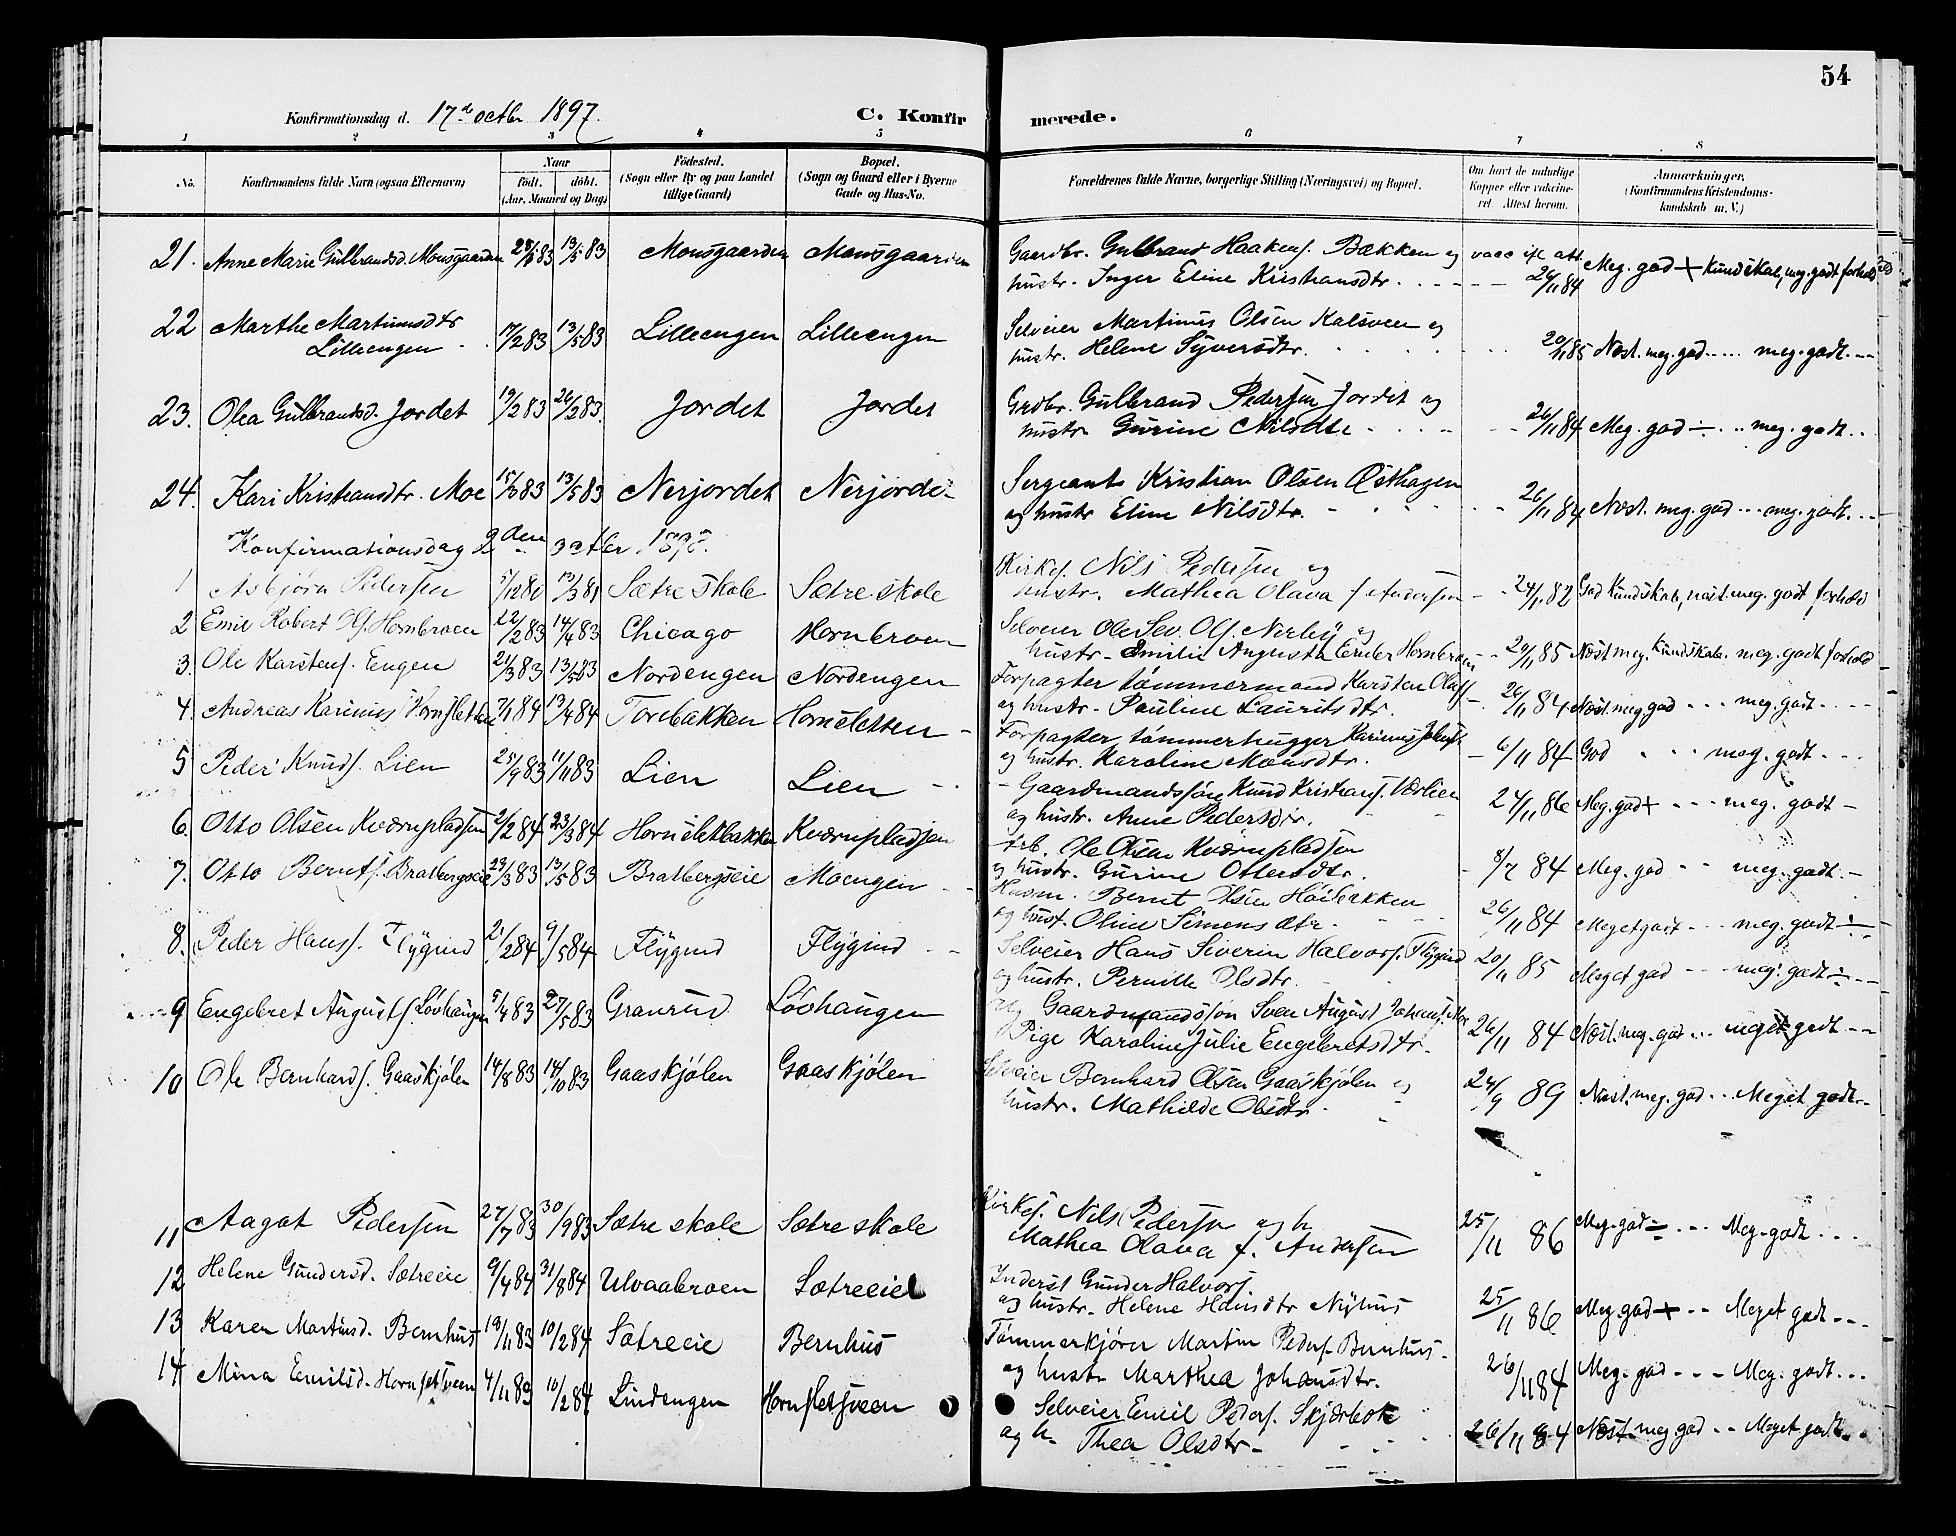 54
Konfirmationsdag d. 17de octbr 1897.
C. Konfirmerede.
1 2 3 4 5 6 7 8
No. Konfirmandens fulde Navn (ogsaa Efternavn) Naar födt. döbt. (Aar, Maaned og Dag) Födested. (Sogn eller By og paa Landet tillige Gaard) Bopæl. (Sogn og Gaard eller i Byerne Gade og Hus-No. Forældrenes fulde Navne, borgerlige Stilling (Næringsvei) og Bopæl. Om havt de naturlige Kopper eller vaccineret. Attest herom. Anmærkninger. (Konfirmandens Kristendomskundskab m. V.)
21. Anne Marie Gulbrandsd. Monsgaarden 83 13/5 83 Monsgaarden Monsgaarden Gaardbr. Gulbrand Haakens. Bækken og vacc att
hustr. Inger Eline Kristiansdtr. 26/11 84 Meg. god + Kundskab, meg. godt forhold
22 Marthe Martinusdtr Lilleengen 17/2 83 13/5 83 Lilleengen Lilleengen Selveier Martinus Olsen Kalsveen og
hustr. Helene Syversdtr. 20/11 85 Næst. meg. god meg. godt.
23. Olea Gulbrandsd. Jordet 19/2 83 26/3 83. Jordet Jordet Grdbr. Gulbrand Pedersen Jordet og
hustr. Gurine Nilsdtr 26/11 84 Meg. god ÷ meg. godt
24. Kari Kristiansdtr. Moe 15/3 83 13/5 83 Nerjordet Nerjordet Sergeant Kristian Olsen Østhagen
og hustr Eline Nilsdtr. 26/11 84 Næst. meg. god meg. godt.
Konfirmationsdag 2den octbr 1898.
1 Asbjørn Pedersen 5/12 80 13/3 81 Sætre skole Sætre skole Kirkes. Nils Pedersen og
hustr. Mathea Olava f. Andersen 24/11 82 God Kundskab, næst. meg. godt forhold
2 Emil Robert Ols. Hornbroen 22/2 83 14/4 83 Chicago Hornbroen Selveier Ole Sev. Ols. Nerby og
hustr. Emilie Augusta Hornbroen 20/11 85 Næst meg. Kundskab. meg. godt forhold
3. Ole Karstens. Engen 21/3 83 13/5 83 Nordengen Nordengen Forpagter tømmermand Karsten Olafs.
og hustr. Pauline Lauritsdtr. 26/11 84 Næst. meg god meg. godt.
4. Andreas Karinius Hornsletten 7/1 84 13/4 84 Torebakken Hornsletten Forpagter tømmerhugger Karinius Johns.
og hustr. Karoline Monsdtr. 6/11 84 God meg. godt.
5 Peder Knuds. Lien 25/9 83 11/11 83 Lien Lien Gaardmandssøn Knud Kristians. Værlien
og hustr. Anne Pedersdtr. 24/11 86 Meg. god + meg. godt
6. Otto Olsen Kværnpladsen 2/2 84 23/3 84 Hornsletbakken Kværnpladsen Arb. Ole Olsen Kværnpladsen
og hustr. Gurine Ottersdtr. 8/7 84 Meg. god meg. godt.
7. Otto Bernts. Bratbergseie 23/3 83 13/5 83 Bratbergseie Moengen Husm. Bernt Olsen Høibækken
og hust. Oline Simensdtr. 26/11 84 Meget godt meg. godt ÷
8. Peder Hanss. Flygind 21/2 84 9/5 84 Flygind Flygind Selveier Hans Siverin Halvors. Flygind
og hustr. Pernille Olsdtr. 20/11 85 Meget god meg. godt ÷
9 Engebret Augusts. Løvhaugen 5/4 83 27/5 83 Granrud Løvhaugen Gaardmandssøn Sven August Johans.
Pige Karoline Julie Engebretsdtr. 26/11 84 Næst. meg. god meget godt
10 Ole Bernhards. Gaaskjølen 14/8 83 14/10 83 Gaaskjølen Gaaskjølen Selveier Bernhard Olsen Gaaskjølen og
hustr. Mathilde Olsdtr. 24/9 89 Næst. meg. god Meget godt
11 Aagot Pedersen 27/7 83 30/9 83 Sætre skole Sætre skole Kirkes. Nils Pedersen og h.
Mathea Olava f. Andersen 25/11 86 Meg. god ÷ Meg. godt
12 Helene Gundersd. Sætreeie 9/4 84 31/8 84 Ulvaabroen Sætreeie Inderst Gunder Halvors.
og hustr. Helene Hansdtr Nyhus 25/11 86 Meg. god + Meget godt
13 Karen Martinsd. Bernhus 19/11 83 10/2 84 Sætreeie Bernhus Tømmerkjører Martin Peders. Bernhus
og hustr. Marthea Johansdtr. 26/11 84 Meg. god Meg. godt
14 Mina Emilsd. Hornsletsveen 4/11 83 10/2 84 Lindengen Hornsletsveen Selveier Emil Peders. Skjærbek
og h. Thea Olsdtr. 26/11 84 Næst. meg god Meget godt.